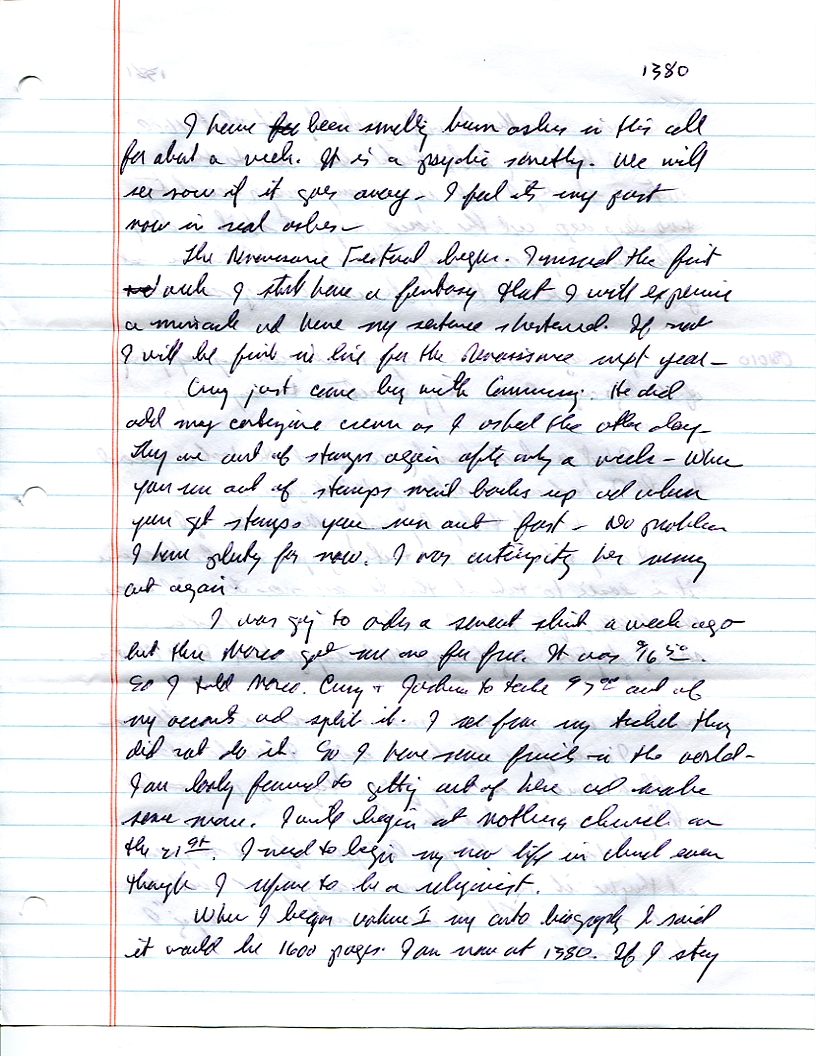 1380
I have been smelling burn ashes in this cell
for about a week. It is a psychic something. We will
see now if it goes away - I feel its my past
now in real ashes -
The Renaissance Festival began. I missed the first
week I still have a fantasy that I will experience
a miracle and have my sentence shortened. If not
I will be first in line for the Renaissance next year -
Cruz just came by with Commissary. He did
add my cortizone cream as I asked the other day -
They are out of stamps again after only a week - When
you run out of stamps mail backs up and when
you get stamps you run out fast - No problem
I have plenty for now. I was anticipating her running
out again.
I was going to order a sweat shirt a week ago
but then Marco got me one for free. It was $16 50.
So I told Marco. Cruz + Joshua to take $ 7 00 out of
my account and split it. I see from my ticket they
did not do it. So I have some friends in the world -
I am looking forward to getting out of here and make
some more. I will begin at nothing church on
the 21st. I need to begin my new life in church even
though I refuse to be a religionist.
When I began volume I my auto biography I said
it would be 1600 pages. I am now at 1380. If I stay